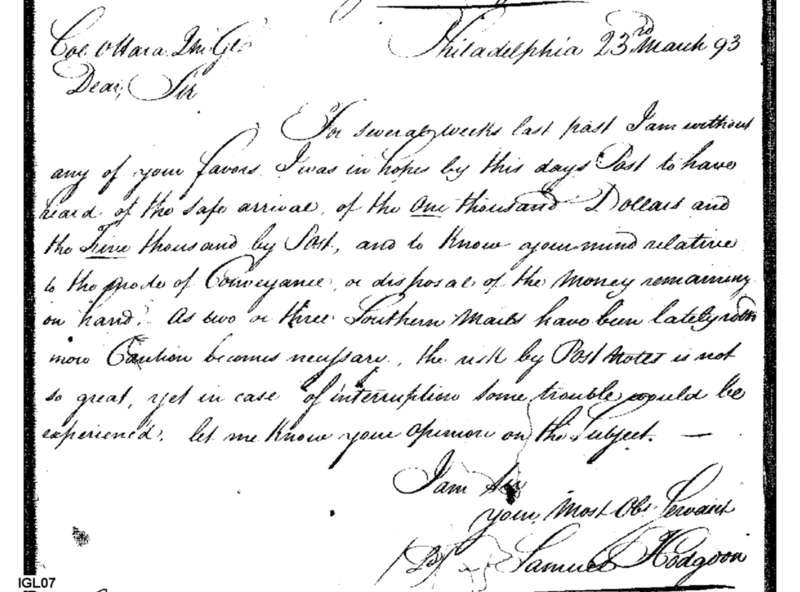 Col. OHara Qm. Gl.
Philadelphia 23rd March 93
Dear, Sir
For several weeks last past I am without
any of your favors. I was in hopes by this days Post to have
heard of the safe arrival, of the One thousand Dollars and
the Five thousand by Post, and to Know your mind relative
to the mode of Conveyance, or disposal of the Money remaining
on hand. As two or three Southern Mails have been lately
more Caution becomes necessary, the risk by Post Notes is not
so great, yet in case of interruption some trouble would be
experienced, let me Know your opinion on the Subject. —
I am Sir
your Most Obt. Servant
Samuel Hodgdon
IGL07